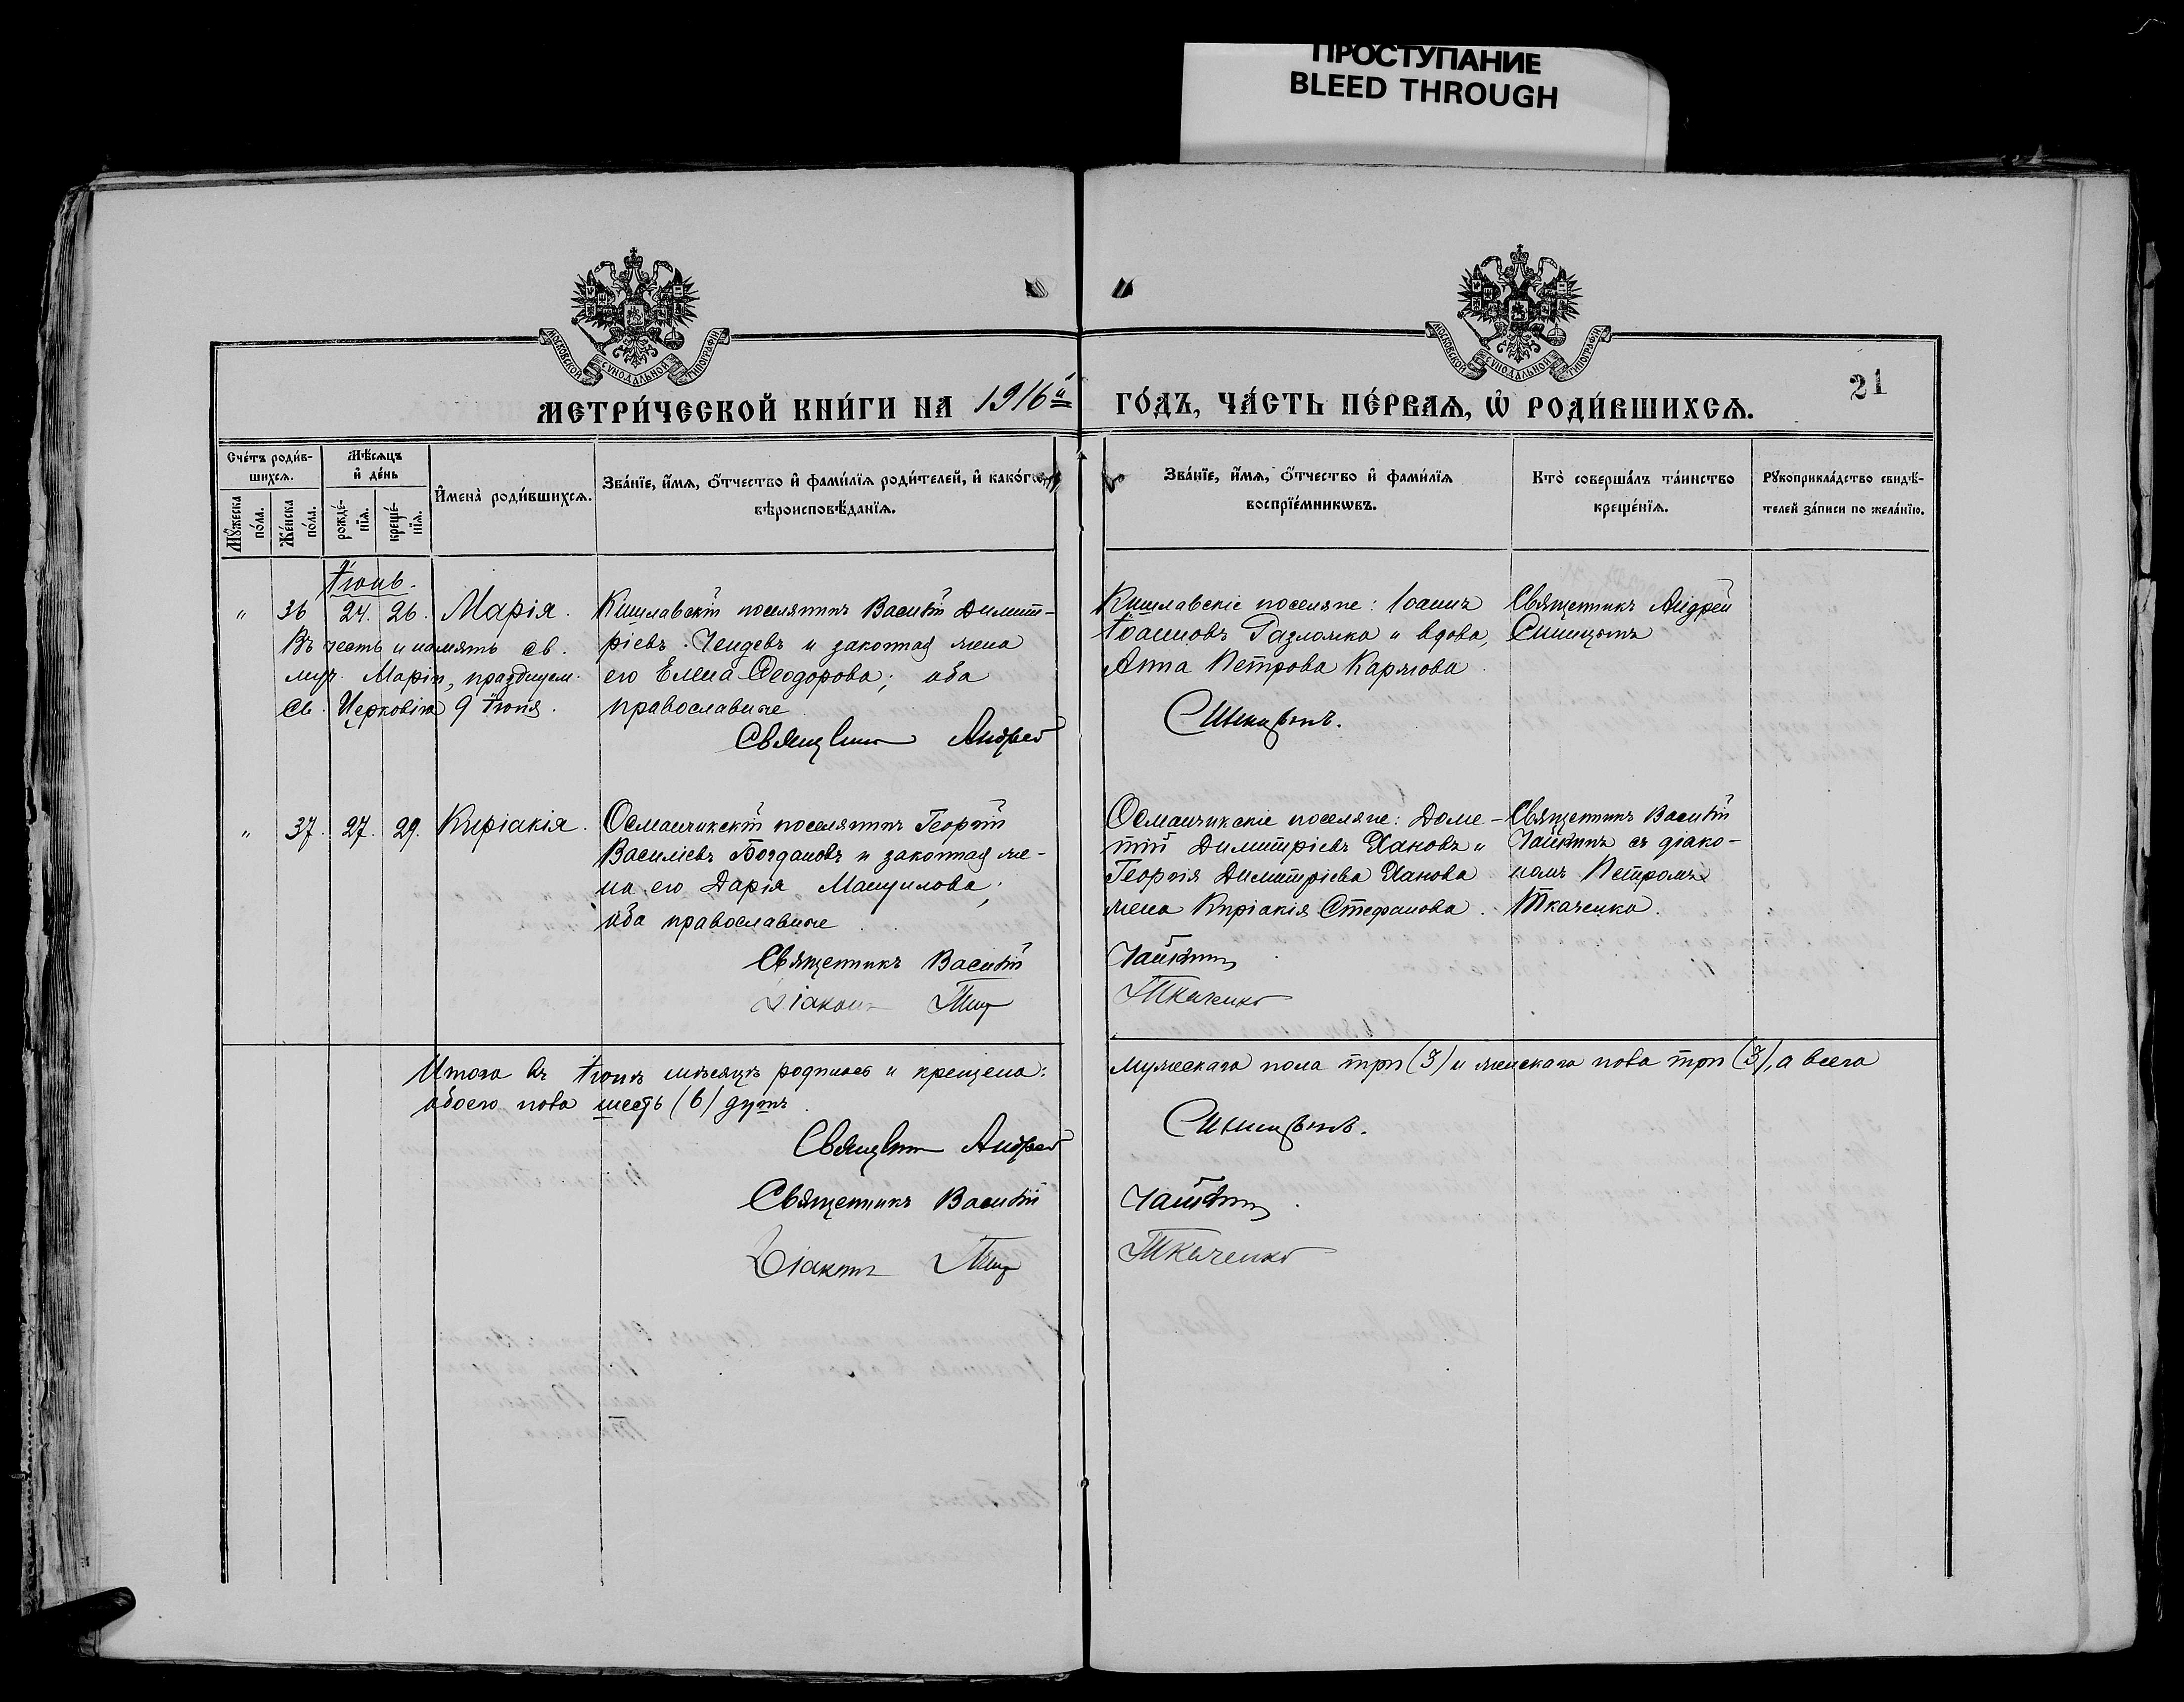 ПРОСТУПАНИЕ
BLEED THROUGH
МОСКОВСКОЙ СѴНОДАЛЬНОЙ ТИПОГРАФІИ
МОСКОВСКОЙ СѴНОДАЛЬНОЙ ТИПОГРАФІИ
21
МЕТРИ́ЧЕСКОЙ КНИ́ГИ НА 1916й ГО́ДЪ, ЧА́СТЬ ПЕ́РВАѦ, Ѡ РОДИ́ВШИХСѦ.
Сче́тъ роди́вшихсѧ.
Мꙋ́жеска по́ла.
Же́нска по́ла.
Мѣ́сѧцъ и҆ де́нь
рожде́нїѧ.
креще́нїѧ.
И҆мена̀ роди́вшихсѧ.
Зва́нїе, и҆́мѧ, ѻ҆́тчество и҆ фами́лїѧ роди́телей, и҆ како́гѡ
вѣроисповѣ́данїѧ.
Зва́нїе, и҆́мѧ, ѻ҆́тчество и҆ фами́лїѧ
воспрїе́мникѡвъ.
Кто̀ соверша́лъ та́инство
креще́нїѧ.
Рꙋкоприкла́дство свидѣ́-
телей за́писи по жела́нїю.
Іюнь.
" 36 24. 26. Марія.
Въ честь и память св.
муч. Маріи, празднуем.
Св. Церковію 9 Іюня.
Кишлавскій поселянинъ Василій Димит-
ріевъ Ченцевъ и законная жена
его Елена Ѳеодорова; оба
православные
Священникъ Андрей
Кишлавскіе поселяне: Іоаннъ
Іоанновъ Газложка и вдова,
Анна Петрова Каржова
Синицынъ.
Священникъ Андрей
Синицынъ
" 37. 27. 29. Киріакія.
Османчикскій поселянинъ Георгій
Василіевъ Богдановъ и законная же-
на его Дарія Манцилова;
оба православные
Священникъ Василій
Діаконъ Петр
Османчикскіе поселяне: Доме-
тій Димитріевъ Хановъ и
Георгія Димитріева Ханова
жена Киріакія Стефанова.
Чайкинъ
Ткаченко
Священникъ Василій
Чайкинъ съ діако-
номъ Петромъ
Ткаченко.
Итого въ Іюнѣ мѣсяцѣ родилось и крещено: мужескаго пола три (3) и женскаго пола три (3), а всего
обоего пола шесть (6) душъ.
Священникъ Андрей Синицынъ.
Священникъ Василій Чайкинъ
Діаконъ Петр Ткаченко